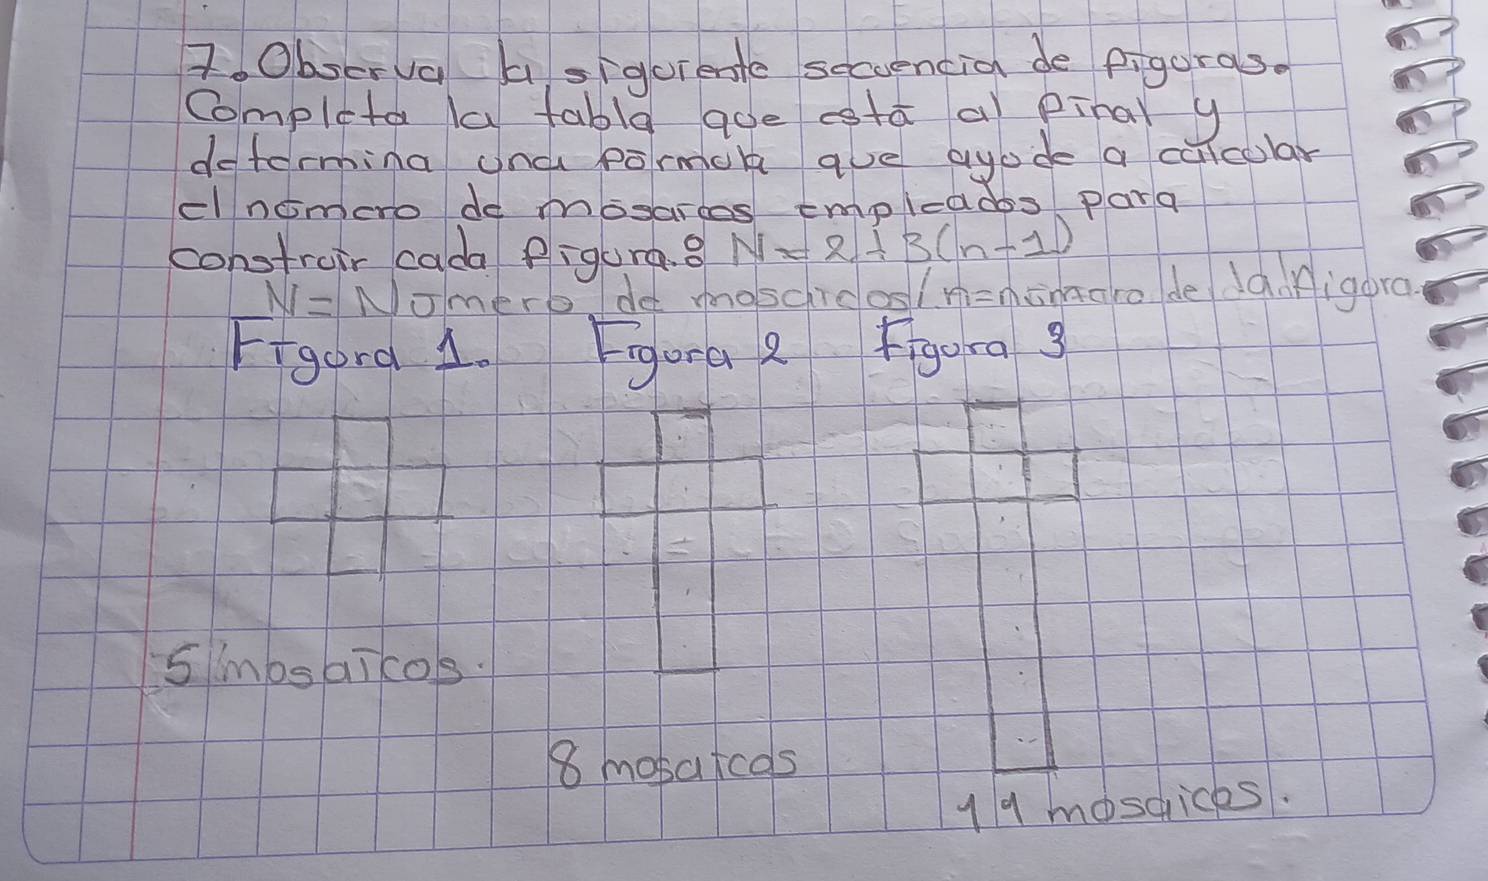 7. Observa la siguiente secuencia de figuras.
Completa la tabla que está al final y
determina una fórmula que ayude a calcular
el número de mosaicos empleados para
construir cada figura: N = 2 + 3(n-1)
N = Número de mosaicos / n = número de la figura.
Figura 1. Figura 2 Figura 3
5 mosaicos.
8 mosaicos
11 mosaicos.